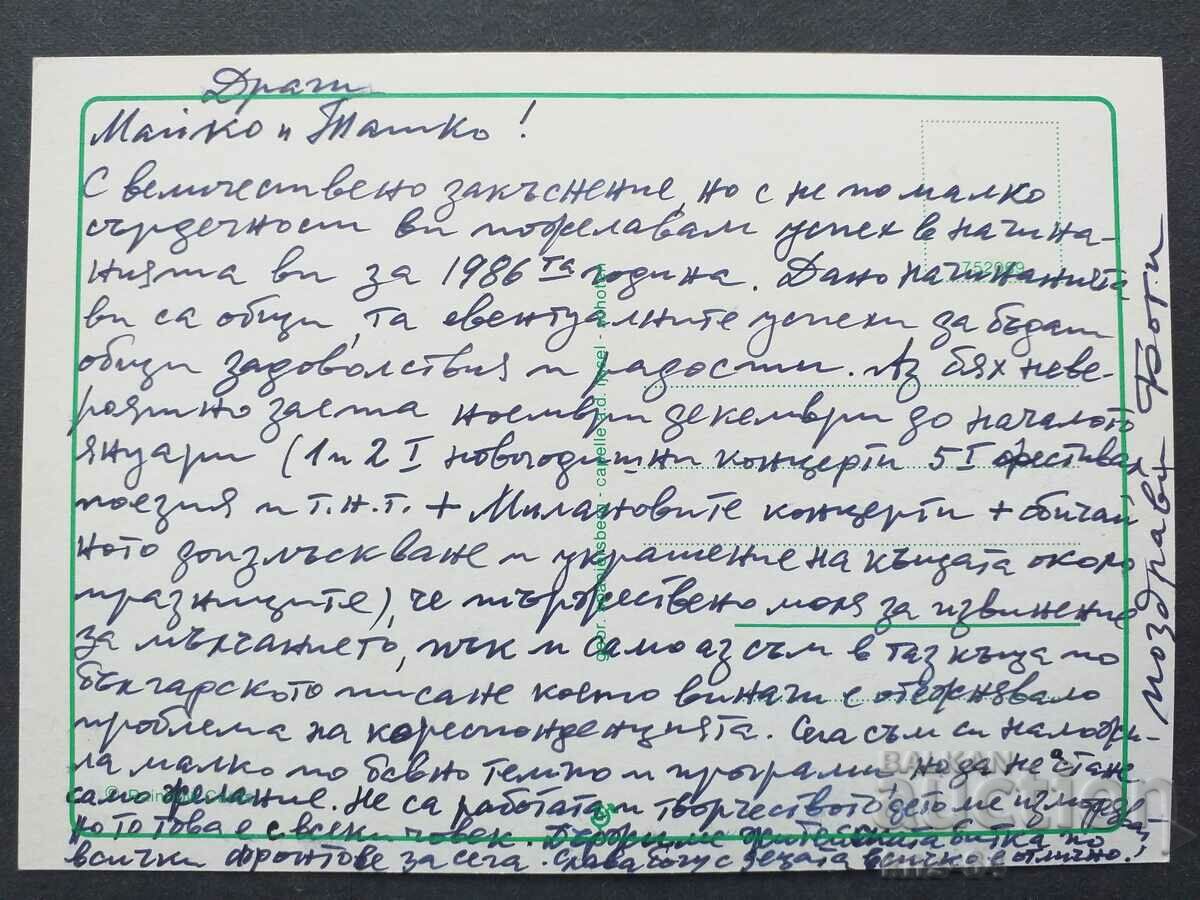 Драги
Майко и Ташко!
С величествено закъснение, но с не по малко
сърдечност ви пожелавам успех в начина-
нията ви за 1986та година. Дано начинанията
ви са общи, та евентуалните успехи да бъдат
общи задоволствия и радости. Аз бях неве-
роятно заета ноември декември до началото
януари (1 и 2 I новогодишни концерти 5 I фестивал
поезия и т.н.т. + Милановите концерти + обичай
ното доизлъскване и украшение на къщата около
празниците), че тържествено моля за извинение
за мълчанието, пък и само аз съм в таз къща по
българското писане което винаги е отежнявало
проблема на кореспонденцията. Сега съм си наложи-
ла малко по бавно темпо и програми, но да не стане
само желание. Не са работата и творчеството дето ме изморяват
но това е с всеки човек. житейската битка по
всички фронтове за сега. Слава богу с децата всичко е отлично!
поздрави
752099
gebr. spanjersberg - capelle a.d. ijssel - holland
BALKAN
auction